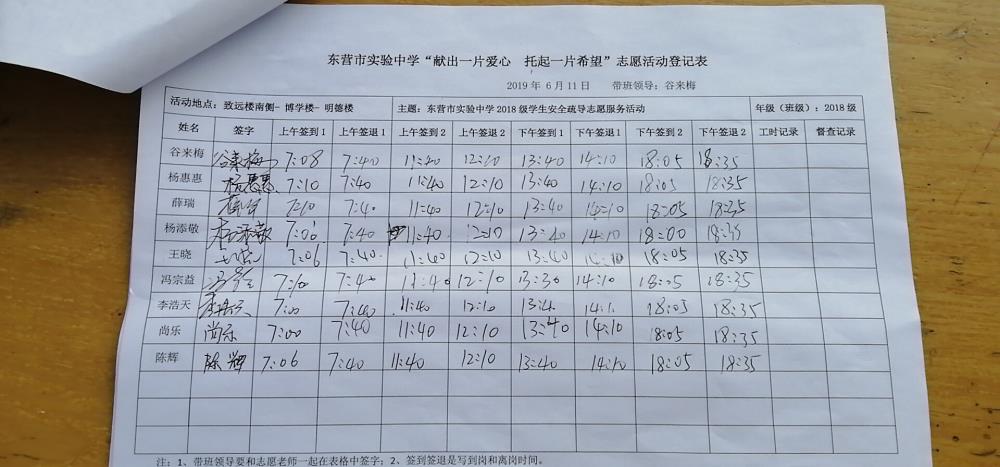 东营市实验中学“献出一片爱心 托起一片希望”志愿活动登记表
2019 年 6 月 11 日 带班领导：谷来梅
活动地点：致远楼南侧- 博学楼- 明德楼 主题：东营市实验中学 2018 级学生安全疏导志愿服务活动 年级（班级）：2018 级
姓名 签字 上午签到 1 上午签退 1 上午签到 2 上午签退 2 下午签到 1 下午签退 1 下午签到 2 下午签退 2 工时记录 督查记录
谷来梅 谷来梅 7:08 7:40 11:40 12:10 13:40 14:10 18:05 18:35
杨惠惠 杨惠惠 7:10 7:40 11:40 12:10 13:40 14:10 18:05 18:35
薛瑞 薛瑞 7:10 7:40 11:40 12:10 13:40 14:10 18:05 18:35
杨添敬 杨添敬 7:06 7:40 11:40 12:10 13:40 14:10 18:00 18:35
王晓 王晓 7:06 7:40 11:40 12:10 13:40 14:10 18:05 18:35
冯宗益 7:10 7:40 11:40 12:10 13:30 14:10 18:05 18:35
李浩天 李浩天 7:00 7:40 11:40 12:10 18:05 18:35
尚乐 尚乐 7:00 7:40 11:40 12:10 13:40 14:10 18:05 18:35
陈辉 陈辉 7:06 7:40 11:40 12:10 13:40 14:10 18:05 18:35
注：1、带班领导要和志愿老师一起在表格中签字；2、签到签退是写到岗和离岗时间。